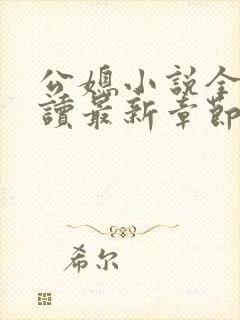 公媳小说全
讀最新章節
希尔